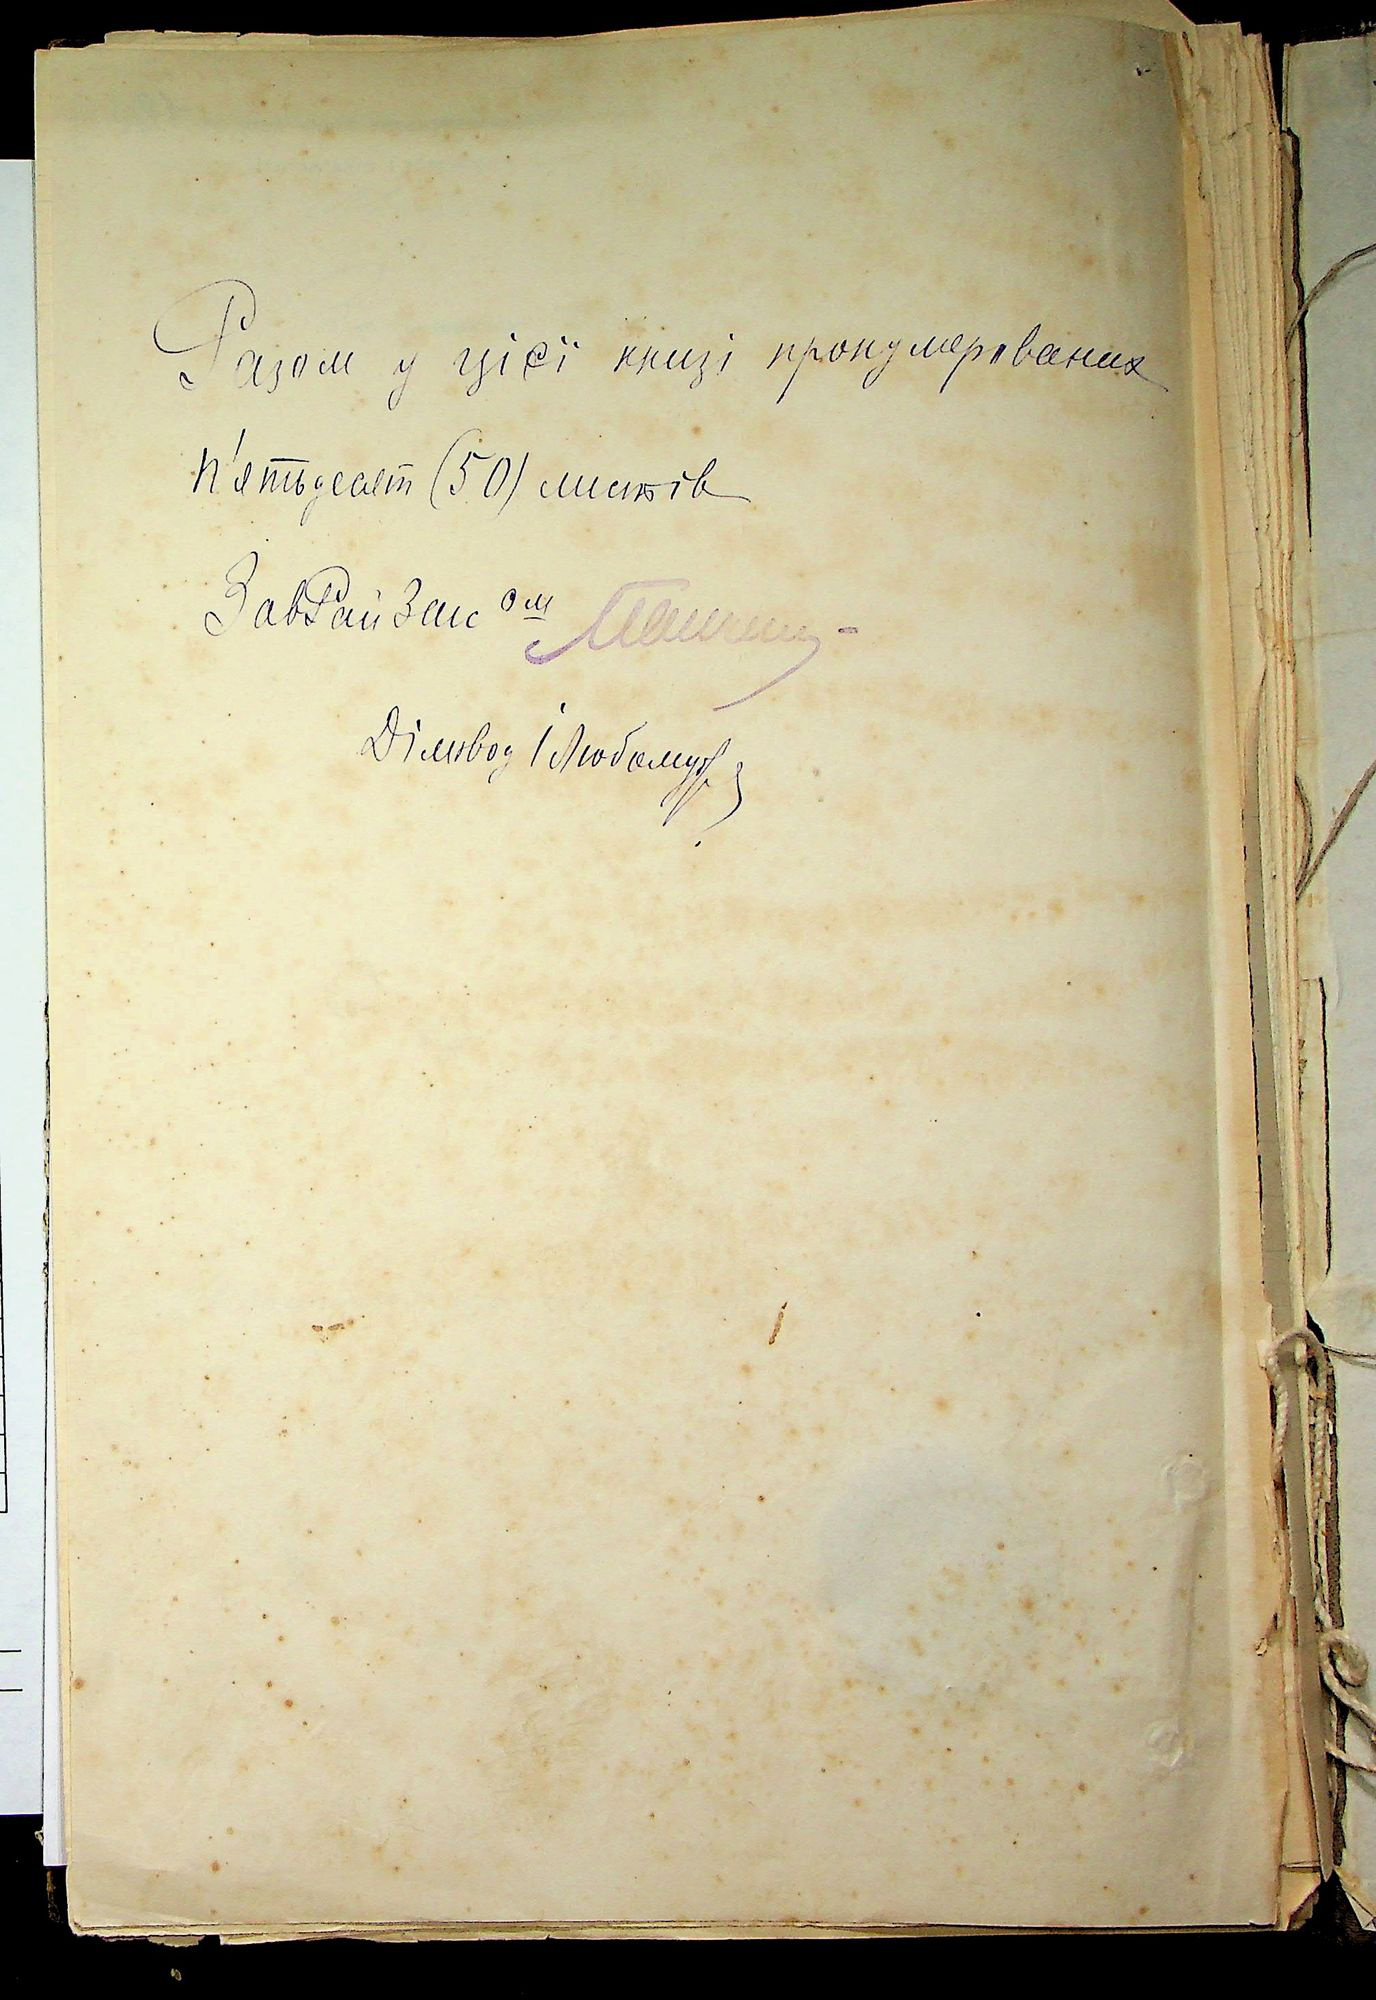 Разом у цієї книзі пронумерованих
п'ятьдесят (50) листів
ЗавРайЗагс ом
Діловод